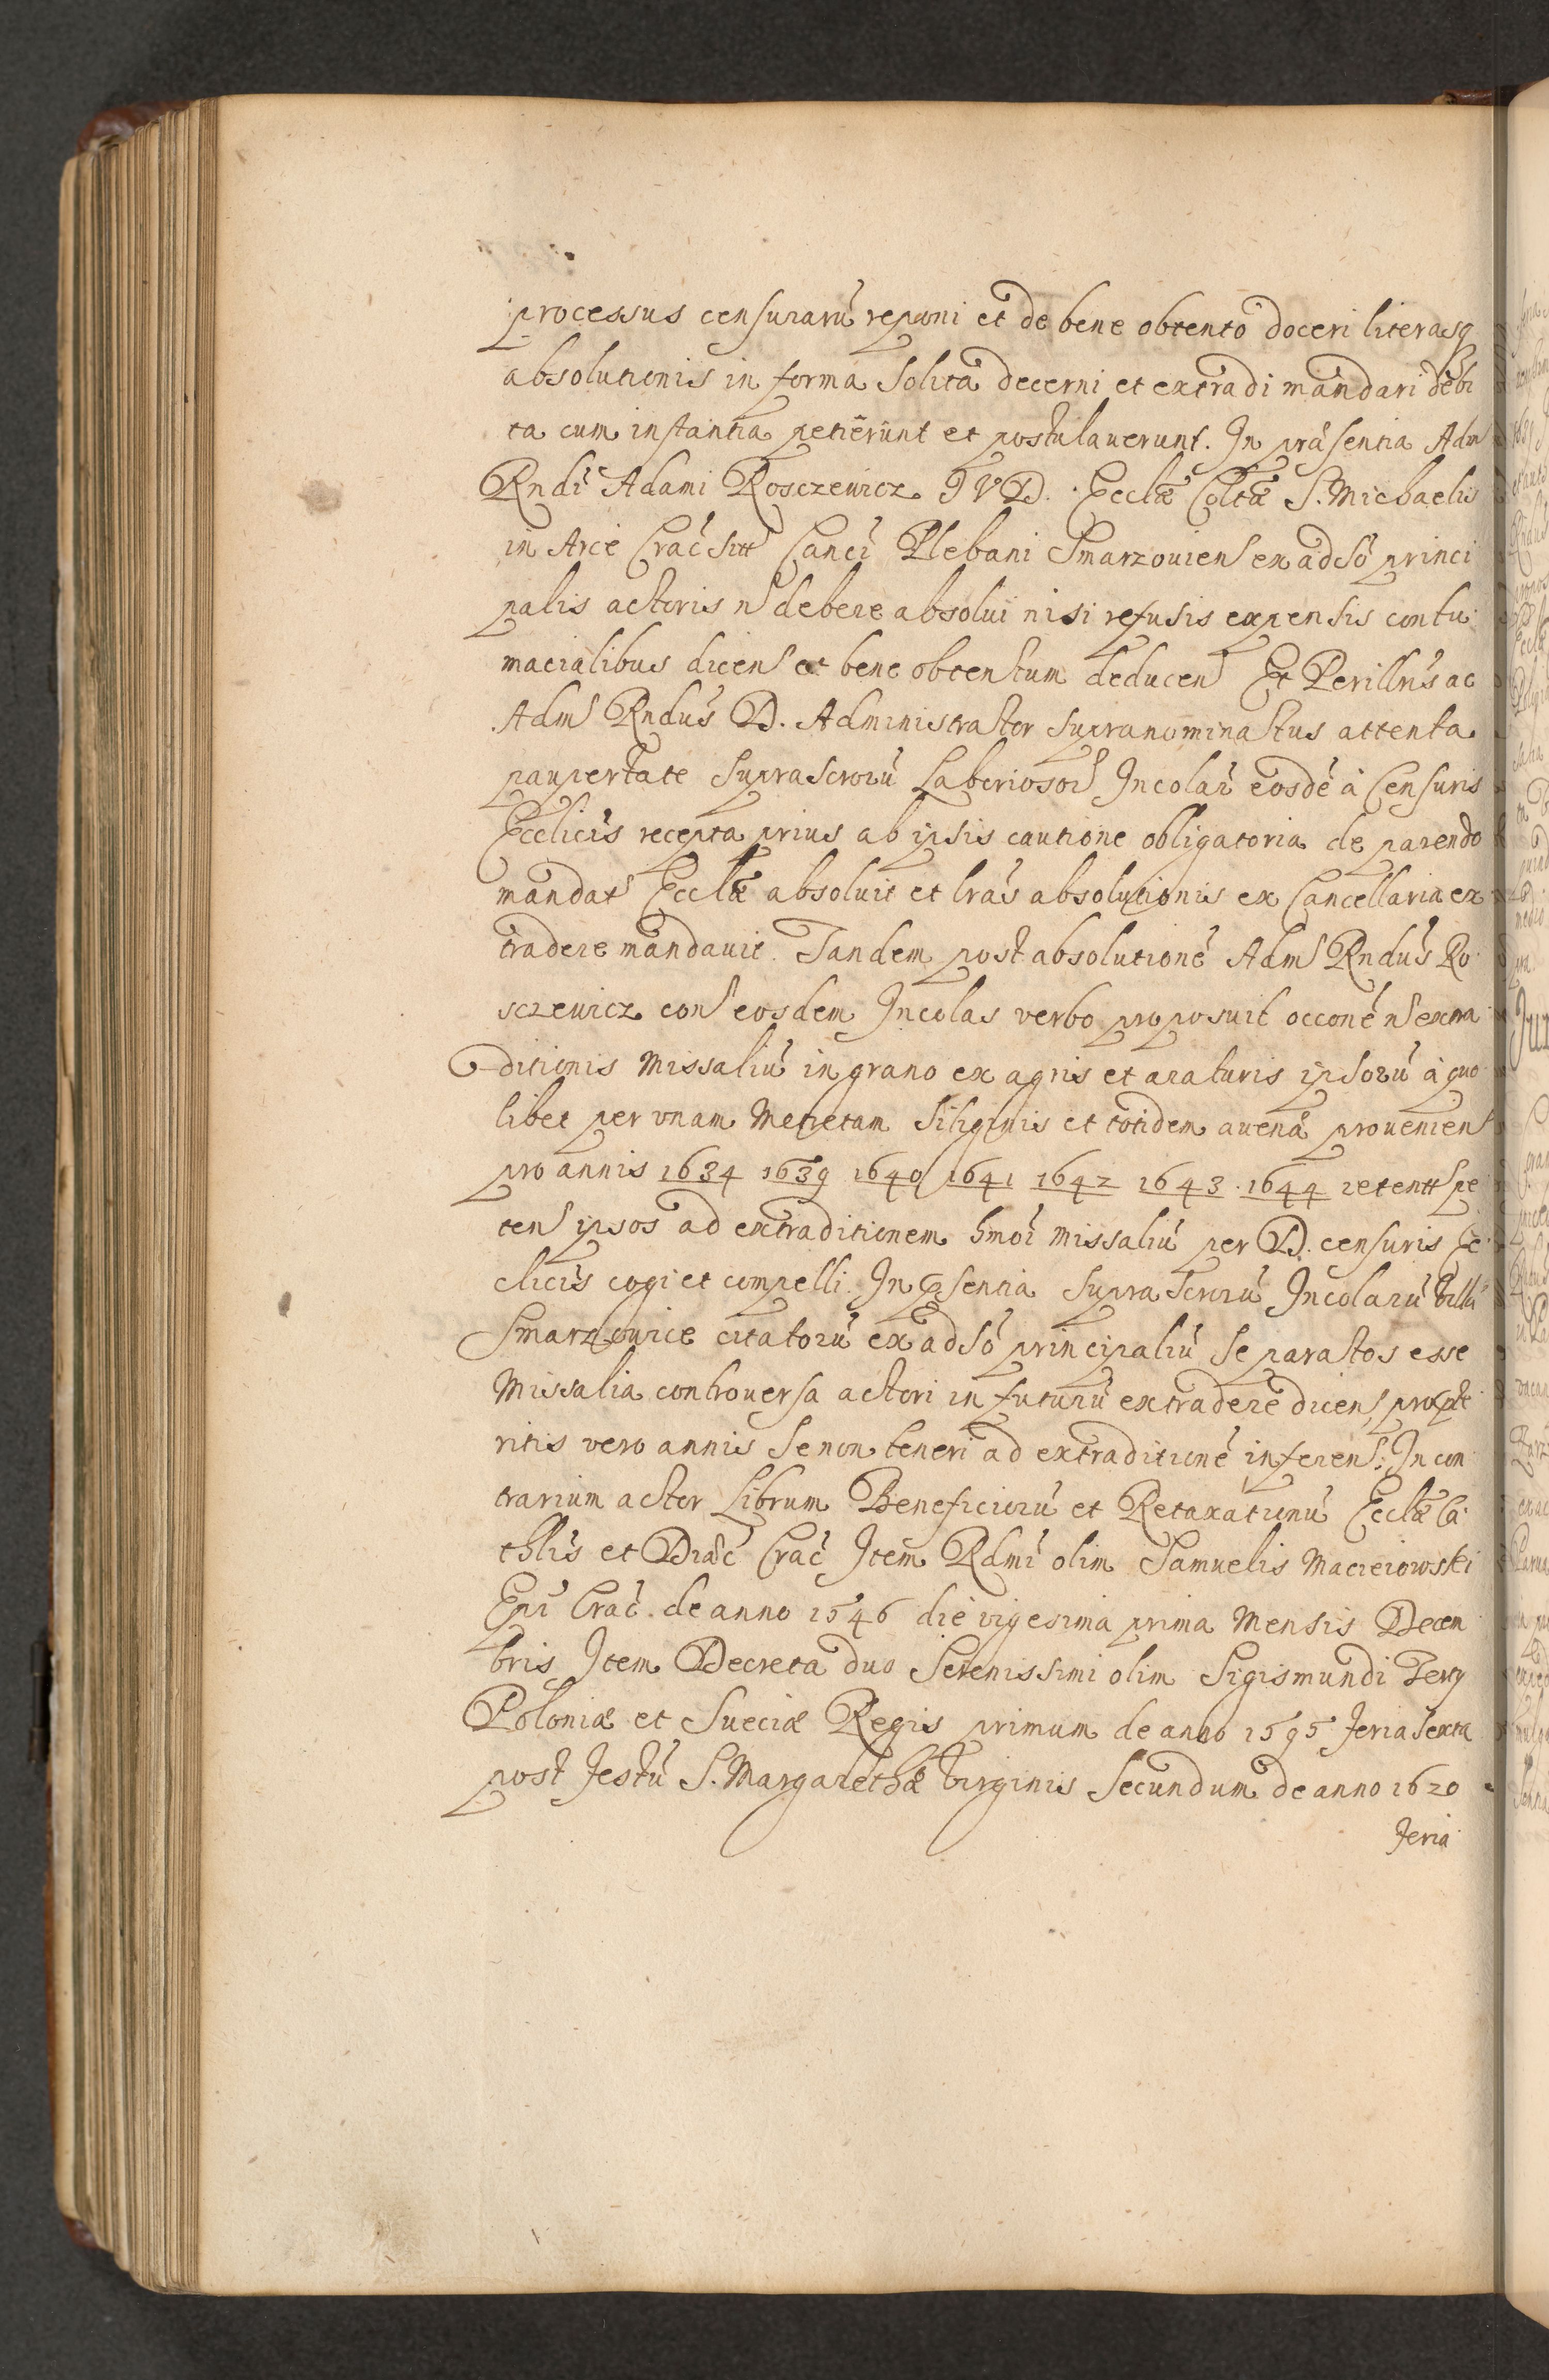 processus censurarũ reponi et de bene obtento doceri literasq
absolutionis in forma solita decerni et extradi mandari debi
ta cum instantia petierunt et postulauerunt. In præsentia Adm
Rndi Adami Rosczewicz J V D. Ecclæ Coltæ S. Michaelis
in Arce Crac sitt Canci Plebani Smarzouien ex adso princi
palis actoris n debere absolui nisi refusis expensis contu
macialibus dicen et bene obtentum deducen Et Perillris ac
Adm Rndus D. Administrator supranominatus attenta
paupertate suprascrorũ Laboriosor Incolar eosdẽ à Censuris
Ecclicis recepta prius ab ipsis cautione obligatoria de parendo
mandat Ecclæ absoluit et lras absolutionis ex Cancellaria ex
tradere mandauit. Tandem post absolutionẽ Adm Rndus Ro
sczewicz con eosdem Incolas verbo proposuit occonẽ n extra
ditionis Missaliũ in grano ex agris et araturis ipsorũ à quo
libet per vnam Metretam siliginis et totidem auenæ prouenien
pro annis 1634 1639 1640 1641 1642 1643. 1644 retentt pe
ten ipsos ad extraditionem hmoi missaliũ per D. censuris Ec
clicis cogi et compelli. In psentia supra scrorũ Incolarũ Villæ
Smarzowice citatorũ ex adso principaliũ se paratos esse
Missalia controuersa actori in futurũ extradere dicen, pro pte
ritis vero annis se non teneri ad extraditionẽ inferen. In con
trarium actor Librum Beneficiorũ et Retaxationũ Ecclæ Ca
thlis et Diæc Crac Item Rdmi olim Samuelis Macieiowski
Epi Crac. de anno 1546 die vigesima prima Mensis Decem
bris Item Decreta duo Serenissimi olim Sigismundi Terty
Poloniæ et Sueciæ Regis primum de anno 1595 feria sexta
post festũ S. Margarethæ Virginis Secundum de anno 1620
feria